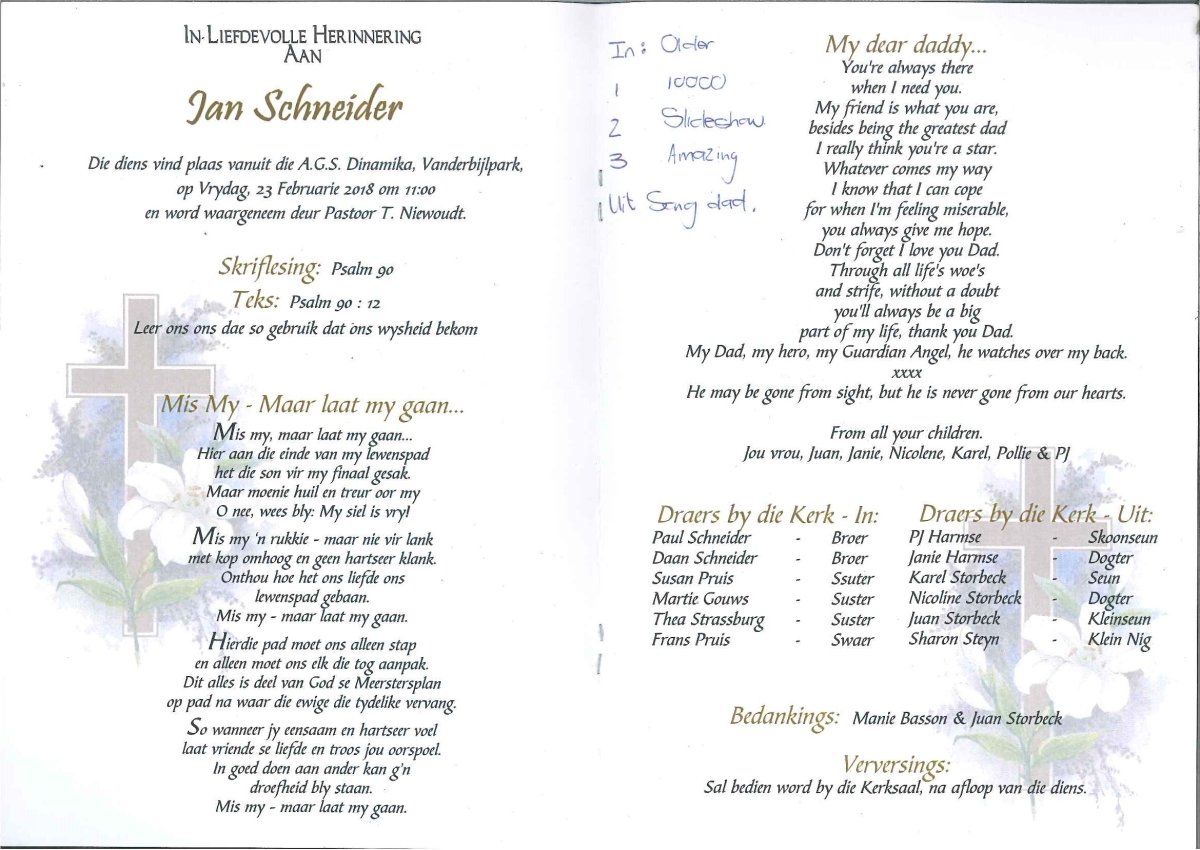 In Liefdevolle Herinnering
Aan
Jan Schneider
Die diens vind plaas vanuit die A.G.S. Dinamika, Vanderbijlpark,
op Vrydag, 23 Februarie 2018 om 11:00
en word waargeneem deur Pastoor T. Niewoudt.
Skriflesing: Psalm 90
Teks: Psalm 90 : 12
Leer ons ons dae so gebruik dat ons wysheid bekom
Mis My - Maar laat my gaan...
Mis my, maar laat my gaan...
Hier aan die einde van my lewenspad
het die son vir my finaal gesak.
Maar moenie huil en treur oor my
O nee, wees bly: My siel is vry!
Mis my 'n rukkie - maar nie vir lank
met kop omhoog en geen hartseer klank.
Onthou hoe het ons liefde ons
lewenspad gebaan.
Mis my - maar laat my gaan.
Hierdie pad moet ons alleen stap
en alleen moet ons elk die tog aanpak.
Dit alles is deel van God se Meerstersplan
op pad na waar die ewige die tydelike vervang.
So wanneer jy eensaam en hartseer voel
laat vriende se liefde en troos jou oorspoel.
In goed doen aan ander kan g'n
droefheid bly staan.
Mis my - maar laat my gaan.
In: Older
1 10000
2 Slideshow
3 Amazing
Uit Song dad.
My dear daddy...
You're always there
when I need you.
My friend is what you are,
besides being the greatest dad
I really think you're a star.
Whatever comes my way
I know that I can cope
for when I'm feeling miserable,
you always give me hope.
Don't forget I love you Dad.
Through all life's woe's
and strife, without a doubt
you'll always be a big
part of my life, thank you Dad.
My Dad, my hero, my Guardian Angel, he watches over my back.
xxxx
He may be gone from sight, but he is never gone from our hearts.
From all your children.
Jou vrou, Juan, Janie, Nicolene, Karel, Pollie & PJ
Draers by die Kerk - In:
Paul Schneider - Broer
Daan Schneider - Broer
Susan Pruis - Ssuter
Martie Gouws - Suster
Thea Strassburg - Suster
Frans Pruis - Swaer
Draers by die Kerk - Uit:
PJ Harmse - Skoonseun
Janie Harmse - Dogter
Karel Storbeck - Seun
Nicoline Storbeck - Dogter
Juan Storbeck - Kleinseun
Sharon Steyn - Klein Nig
Bedankings: Manie Basson & Juan Storbeck
Verversings:
Sal bedien word by die Kerksaal, na afloop van die diens.